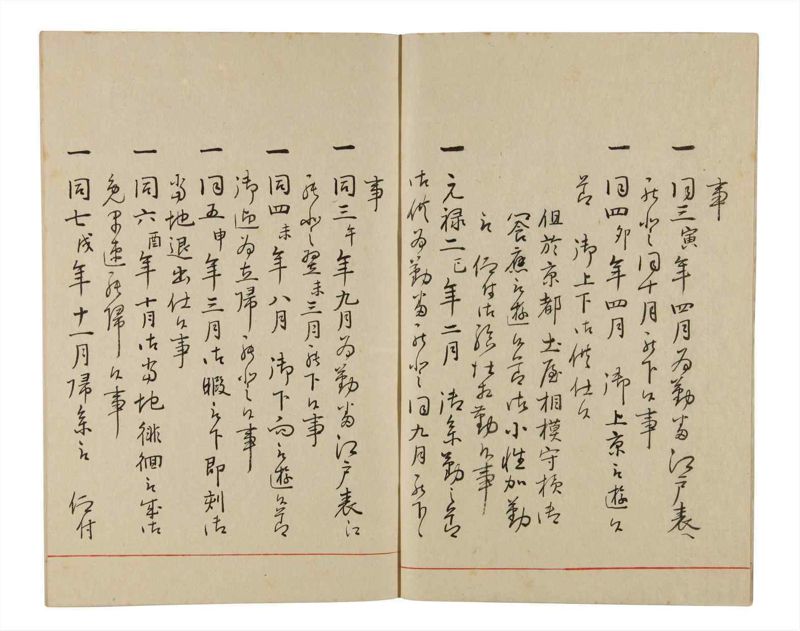 事
一 同三寅年四月為勤番江戸表へ
罷登同十月罷下候事
一 同四卯年四月 御上京被遊候
節 御上下御供仕候
但於京都土屋相模守様御
饗應被遊候節御小性加勤
被 仰付御給仕相勤候事
一 元禄二巳年二月 御参勤之節
御供為勤番罷登同九月罷下候
事
一 同三午年九月為勤番江戸表江
罷登翌未三月罷下候事
一 同四未年八月 御下向被遊候節
御迎為立帰罷登候事
一 同五申年三月御暇被下即刻御
当地退出仕候事
一 同六酉年十月御当地徘徊被成御
免早速罷帰り候事
一 同七戌年十一月帰参被 仰付